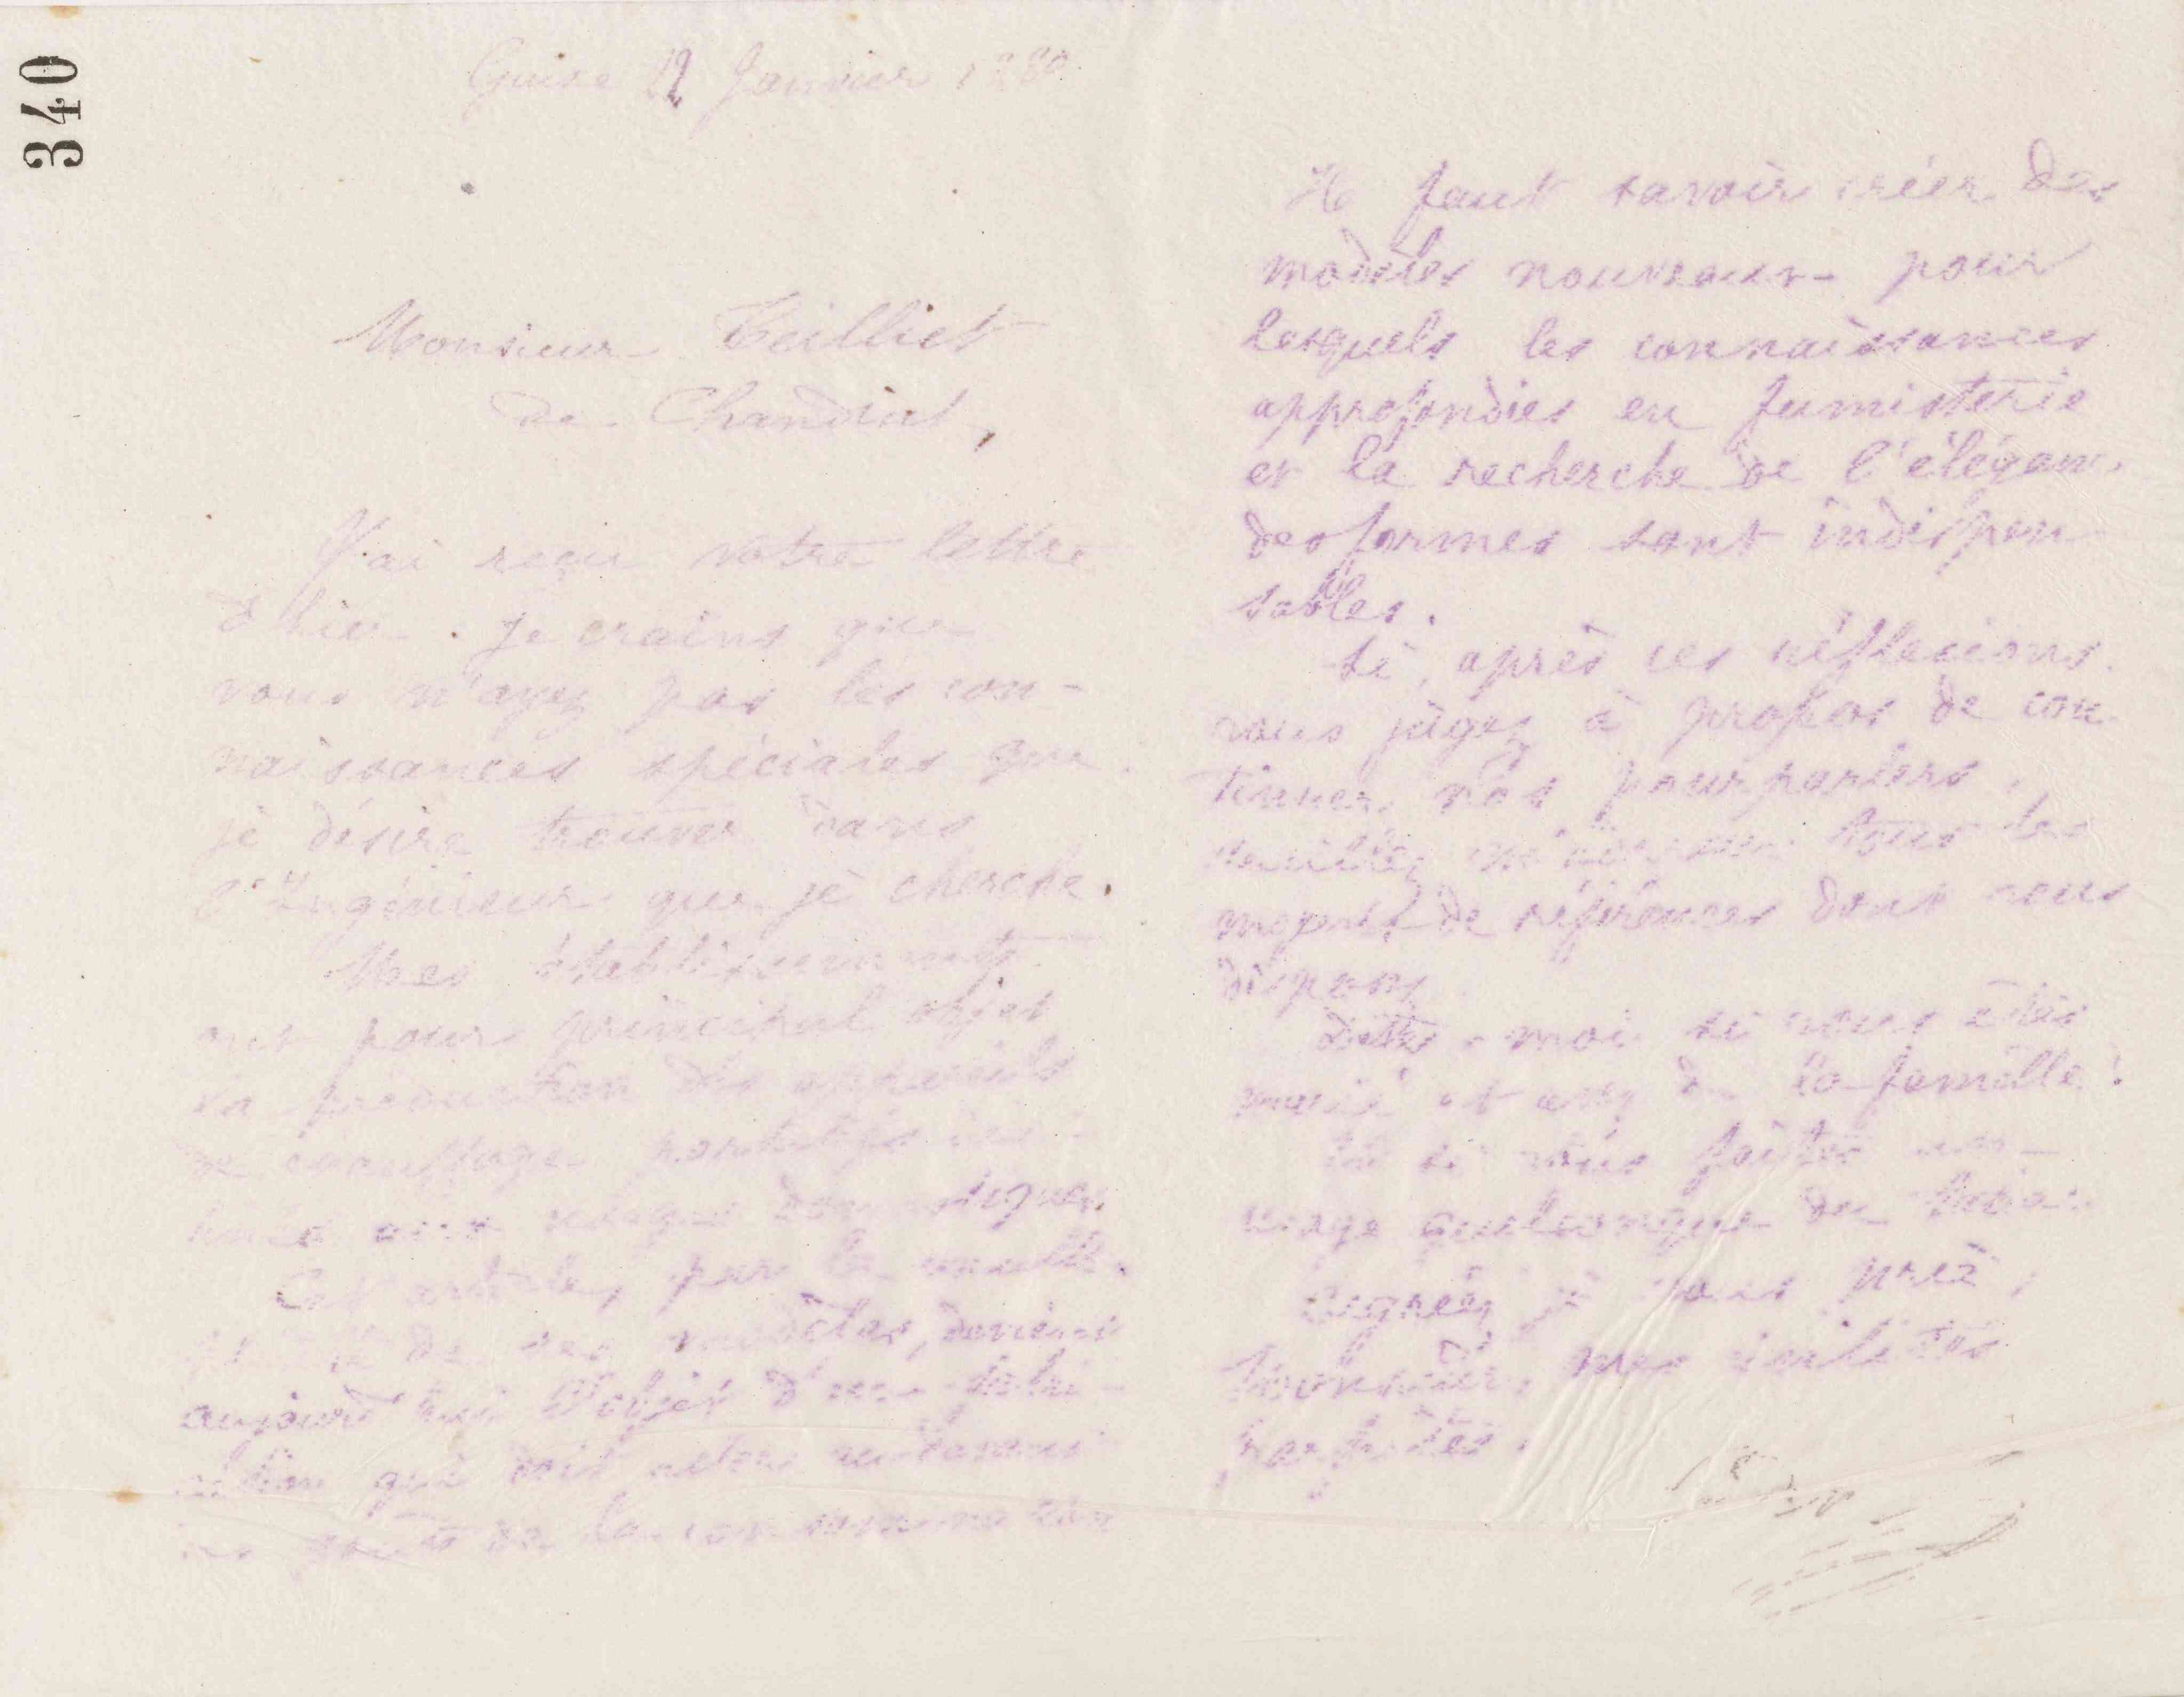 340
Guise 22 Janvier 1880
Monsieur Teilliet
de Chandiat,
J'ai reçu votre lettre
d'hier. Je crains que
vous n'ayez pas les con-
naissances spéciales que
je désire trouver dans
l'Ingénieur que je cherche.
Mes établissements
ont pour principal objet
la production des appareils
de chauffage portatifs
aux usages domestiques.
Cet article, par la
de ses modèles, devient
aujourd'hui l'objet d'une
qui doit
de la consommation
Il faut savoir créer des
modèles nouveaux pour
lesquels les connaissances
approfondies en fumisterie
et la recherche de l'élégance
des formes sont indispen
sables.
Si, après ces réflexions
vous jugez à propos de con
tinuer nos pourparlers,
veuillez m'adresser tous les
moyens de références dont vous
disposez
Dites-moi si vous êtes
marié et avez de la famille!
si vous faites un
usage quelconque du tabac.
Agréez je vous prie,
Monsieur, mes civilités
parfaites.